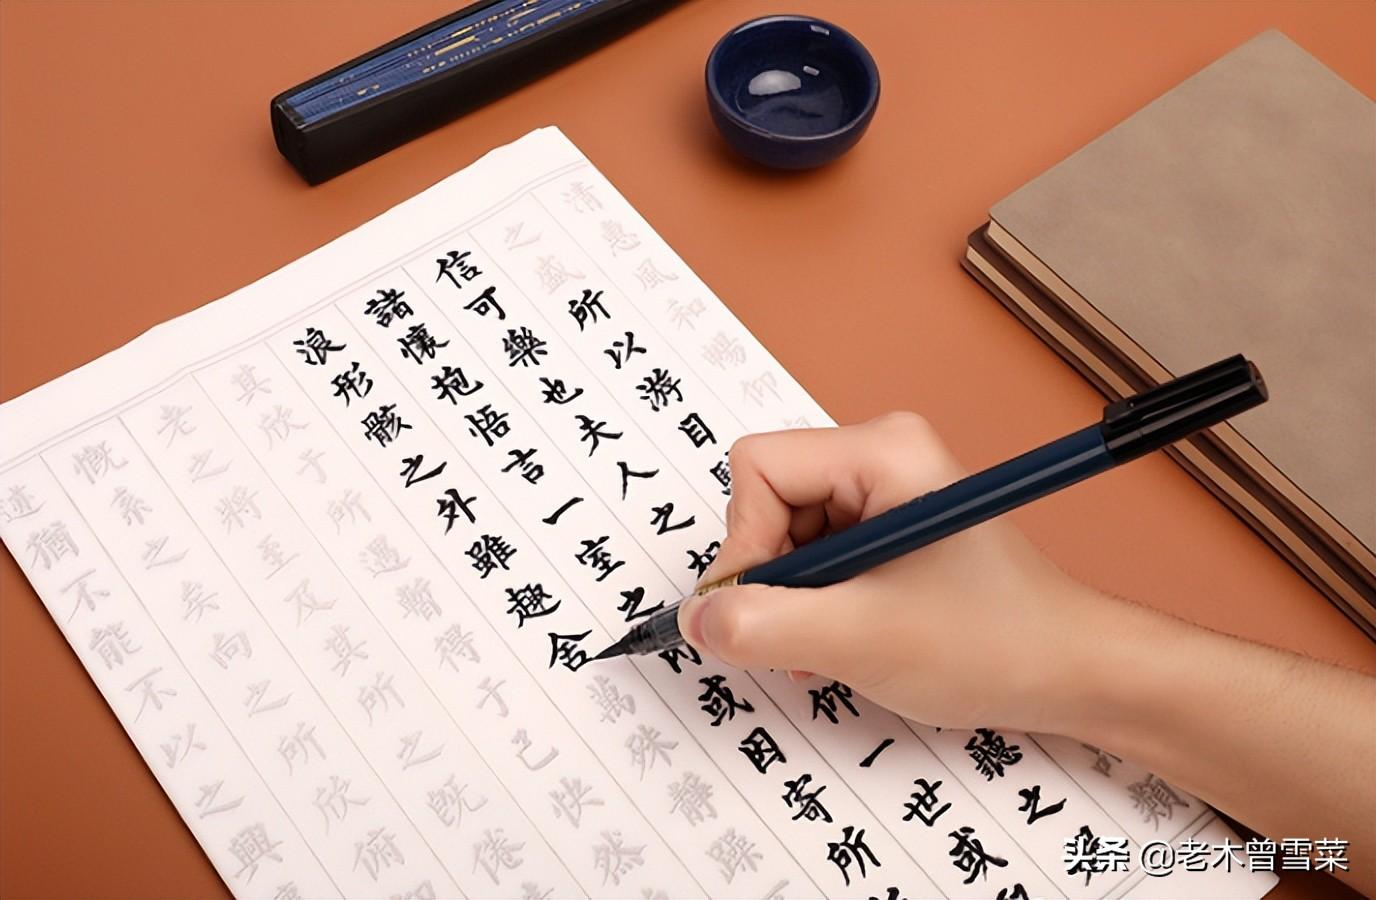 清惠風和暢仰類
之盛所以游目騁聽之娛
信可樂也夫人之相仰一世或取
諸懷抱悟言一室之內或因寄所
浪形骸之外雖趣舍萬殊靜躁
其欣于所遇暫得于己快然
老之將至及其所之既倦
慨系之矣向之所欣俯仰
迹猶不能不以之興懷
头条 @老木曾雪菜